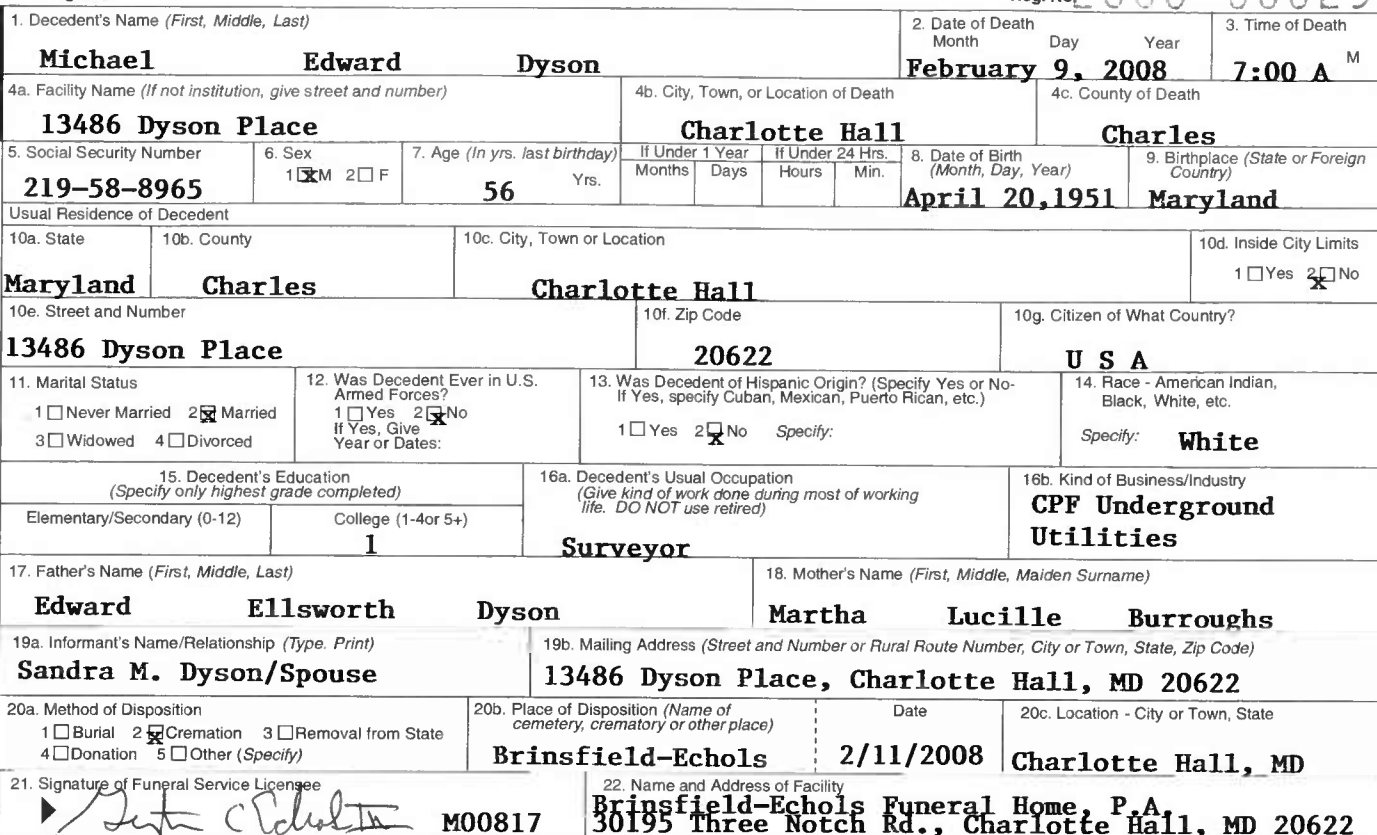 1. Decedent's Name (First, Middle, Last)
Michael Edward Dyson
2. Date of Death
Month Day Year
February 9, 2008
3. Time of Death
7:00 A M
4a. Facility Name (If not institution, give street and number)
13486 Dyson Place
4b. City, Town, or Location of Death
Charlotte Hall
4c. County of Death
Charles
5. Social Security Number
219-58-8965
6. Sex
1 X M 2 F
7. Age (In yrs. last birthday)
56 Yrs.
If Under 1 Year
Months Days
If Under 24 Hrs.
Hours Min.
8. Date of Birth
(Month, Day, Year)
April 20,1951
9. Birthplace (State or Foreign
Country)
Maryland
Usual Residence of Decedent
10a. State
Maryland
10b. County
Charles
10c. City, Town or Location
Charlotte Hall
10d. Inside City Limits
1 Yes 2 X No
10e. Street and Number
13486 Dyson Place
10f. Zip Code
20622
10g. Citizen of What Country?
U S A
11. Marital Status
1 Never Married 2 X Married
3 Widowed 4 Divorced
12. Was Decedent Ever in U.S.
Armed Forces?
1 Yes 2 X No
If Yes, Give
Year or Dates:
13. Was Decedent of Hispanic Origin? (Specify Yes or No-
If Yes, specify Cuban, Mexican, Puerto Rican, etc.)
1 Yes 2 X No Specify:
14. Race - American Indian,
Black, White, etc.
Specify: White
15. Decedent's Education
(Specify only highest grade completed)
Elementary/Secondary (0-12)
College (1-4or 5+)
1
16a. Decedent's Usual Occupation
(Give kind of work done during most of working
life. DO NOT use retired)
Surveyor
16b. Kind of Business/Industry
CPF Underground
Utilities
17. Father's Name (First, Middle, Last)
Edward Ellsworth Dyson
18. Mother's Name (First, Middle, Maiden Surname)
Martha Lucille Burroughs
19a. Informant's Name/Relationship (Type. Print)
Sandra M. Dyson/Spouse
19b. Mailing Address (Street and Number or Rural Route Number, City or Town, State, Zip Code)
13486 Dyson Place, Charlotte Hall, MD 20622
20a. Method of Disposition
1 Burial 2 X Cremation 3 Removal from State
4 Donation 5 Other (Specify)
20b. Place of Disposition (Name of
cemetery, crematory or other place)
Brinsfield-Echols
Date
2/11/2008
20c. Location - City or Town, State
Charlotte Hall, MD
21. Signature of Funeral Service Licensee
M00817
22. Name and Address of Facility
Brinsfield-Echols Funeral Home, P.A.
30195 Three Notch Rd., Charlotte Hall, MD 20622